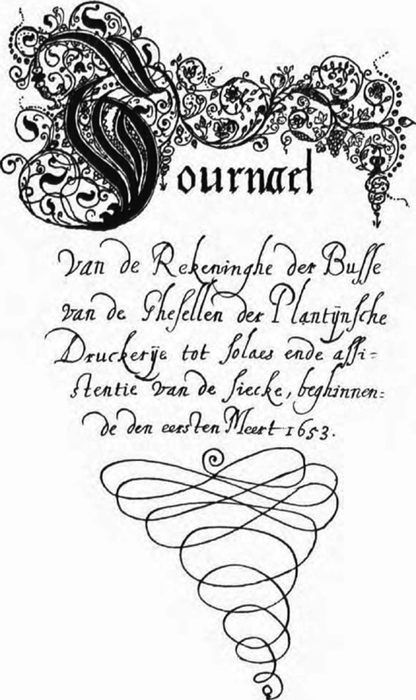 Journael
van de Rekeninghe der Busse
van de Ghesellen der Plantijnsche
Druckerije tot solaes ende assi=
stentie van de siecke, beghinnen=
de den eersten Meert 1653.